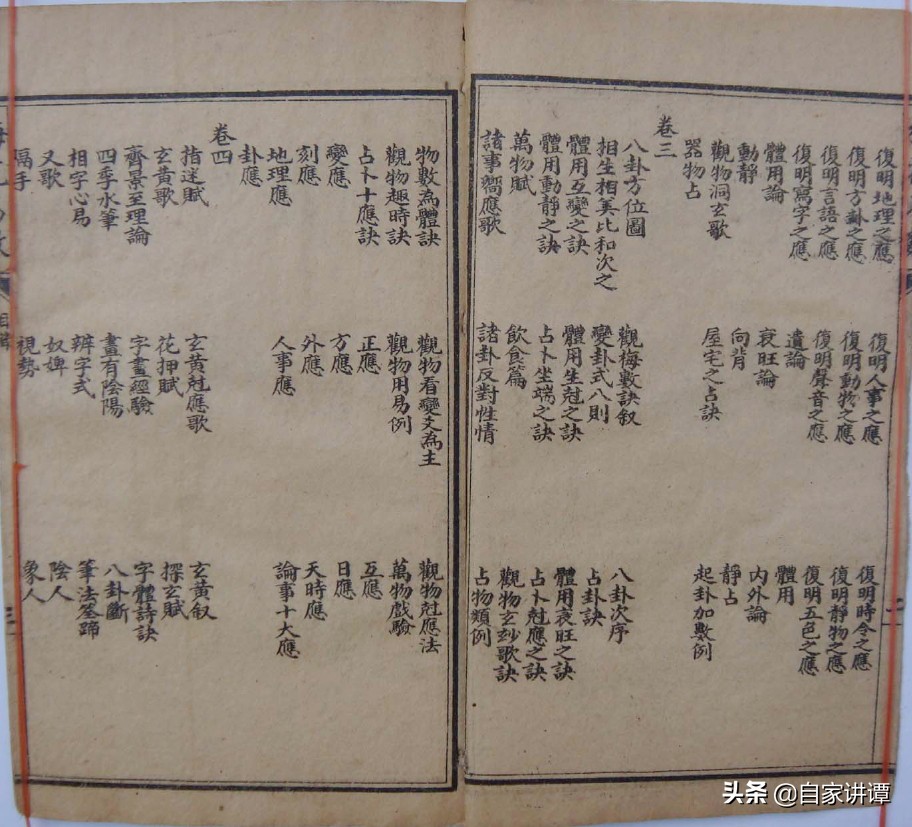 復明地理之應 復明人事之應 復明時令之應
復明方卦之應 復明動物之應 復明靜物之應
復明言語之應 復明聲音之應 復明五色之應
復明寫字之應 遺論 體用
體用論 衰旺論 內外論
動靜 向背 靜占
觀物洞玄歌 屋宅之占訣 起卦加數例
器物占
卷三
八卦方位圖 觀梅數訣叙 八卦次序
相生相尅比和次之 變卦式八則 占卦訣
體用互變之訣 體用生尅之訣 體用衰旺之訣
體用動靜之訣 占卜坐端之訣 占卜尅應之訣
萬物賦 飲食篇 觀物玄妙歌訣
諸事嚮應歌 諸卦反對性情 占物類例
物數為體訣 觀物看變爻為主 觀物尅應法
觀物趣時訣 觀物用易例 萬物戲驗
占卜十應訣 正應 互應
變應 方應 日應
刻應 外應 天時應
地理應 人事應 論事十大應
卦應
卷四
指迷賦 玄黃尅應歌 玄黃叙
玄黃歌 花押賦 探玄賦
齊景至理論 字畫經驗 字體詩訣
四季水筆 畫有陰陽 八卦斷
相字心易 辨字式 筆法筌蹄
又歌 奴婢 陰人
隔手 視勢 象人
头条 @自家讲谭